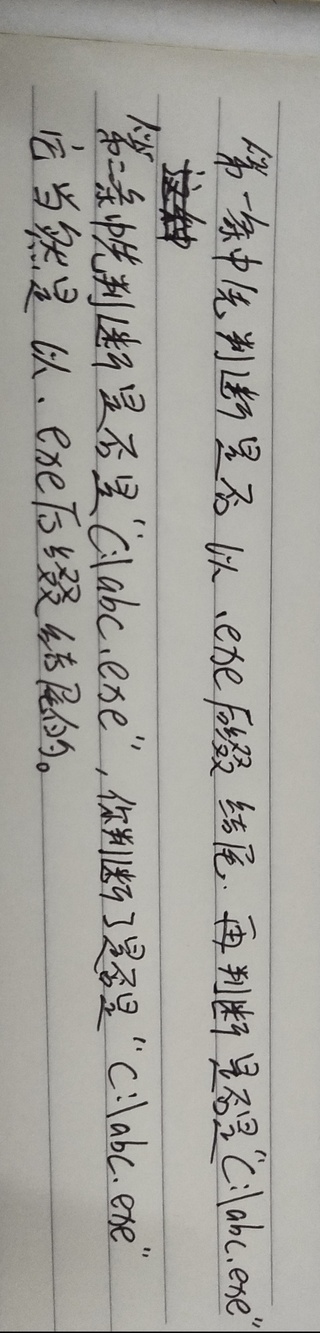 第一条中先判断是否以.exe后缀结尾.再判断是否是"C:\abc.exe"
第二条中先判断是否是"C:\abc.exe",你判断了是否是"C:\abc.exe"
它当然是以.exe后缀结尾的。